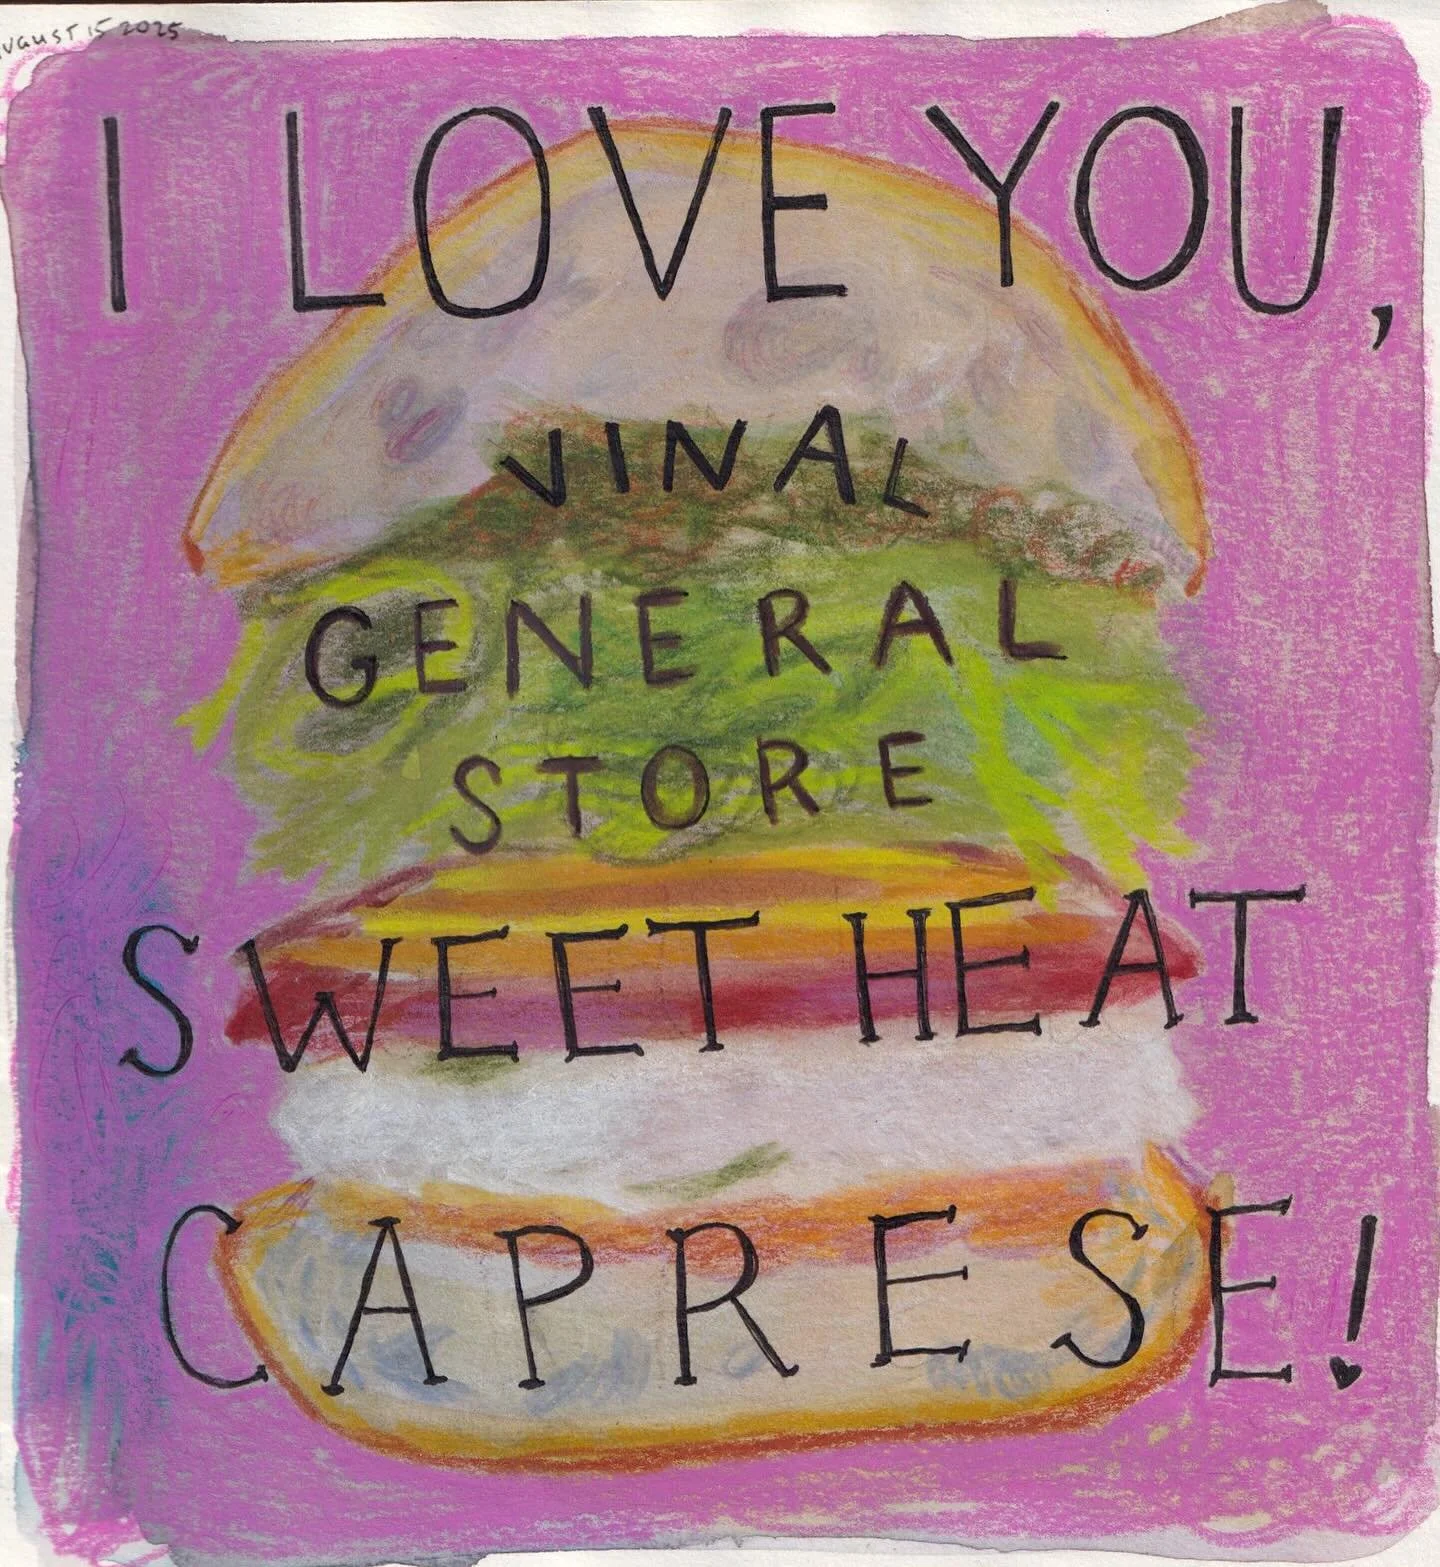 AUGUST 15 2025
I LOVE YOU,
VINAL
GENERAL
STORE
SWEET HEAT
CAPRESE!